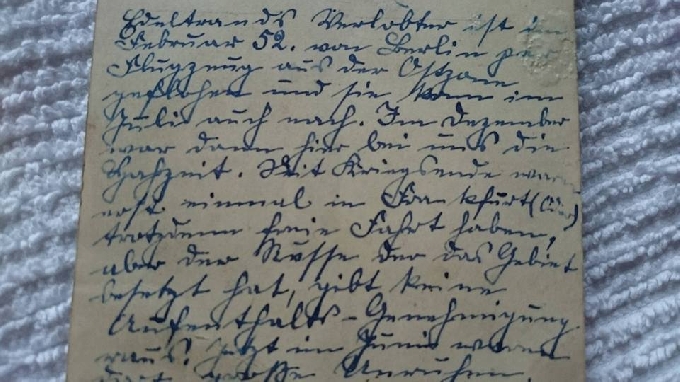 Edeltrauds Verlobter ist im
Februar 52. von Berlin per
Flugzeug aus der Ostzone
geflohen und sie kam im
Juli auch nach. Im Dezember
war dann hier bei uns die
Hochzeit. Seit Kriegsende waren
erst einmal in Frankfurt (Oder)
trotzdem freie Fahrt haben,
aber der Russe der das Gebiet
besetzt hat, gibt keine
Aufenthalts-Genehmigung
raus. Jetzt im Juni waren
dort grosse Unruhen.